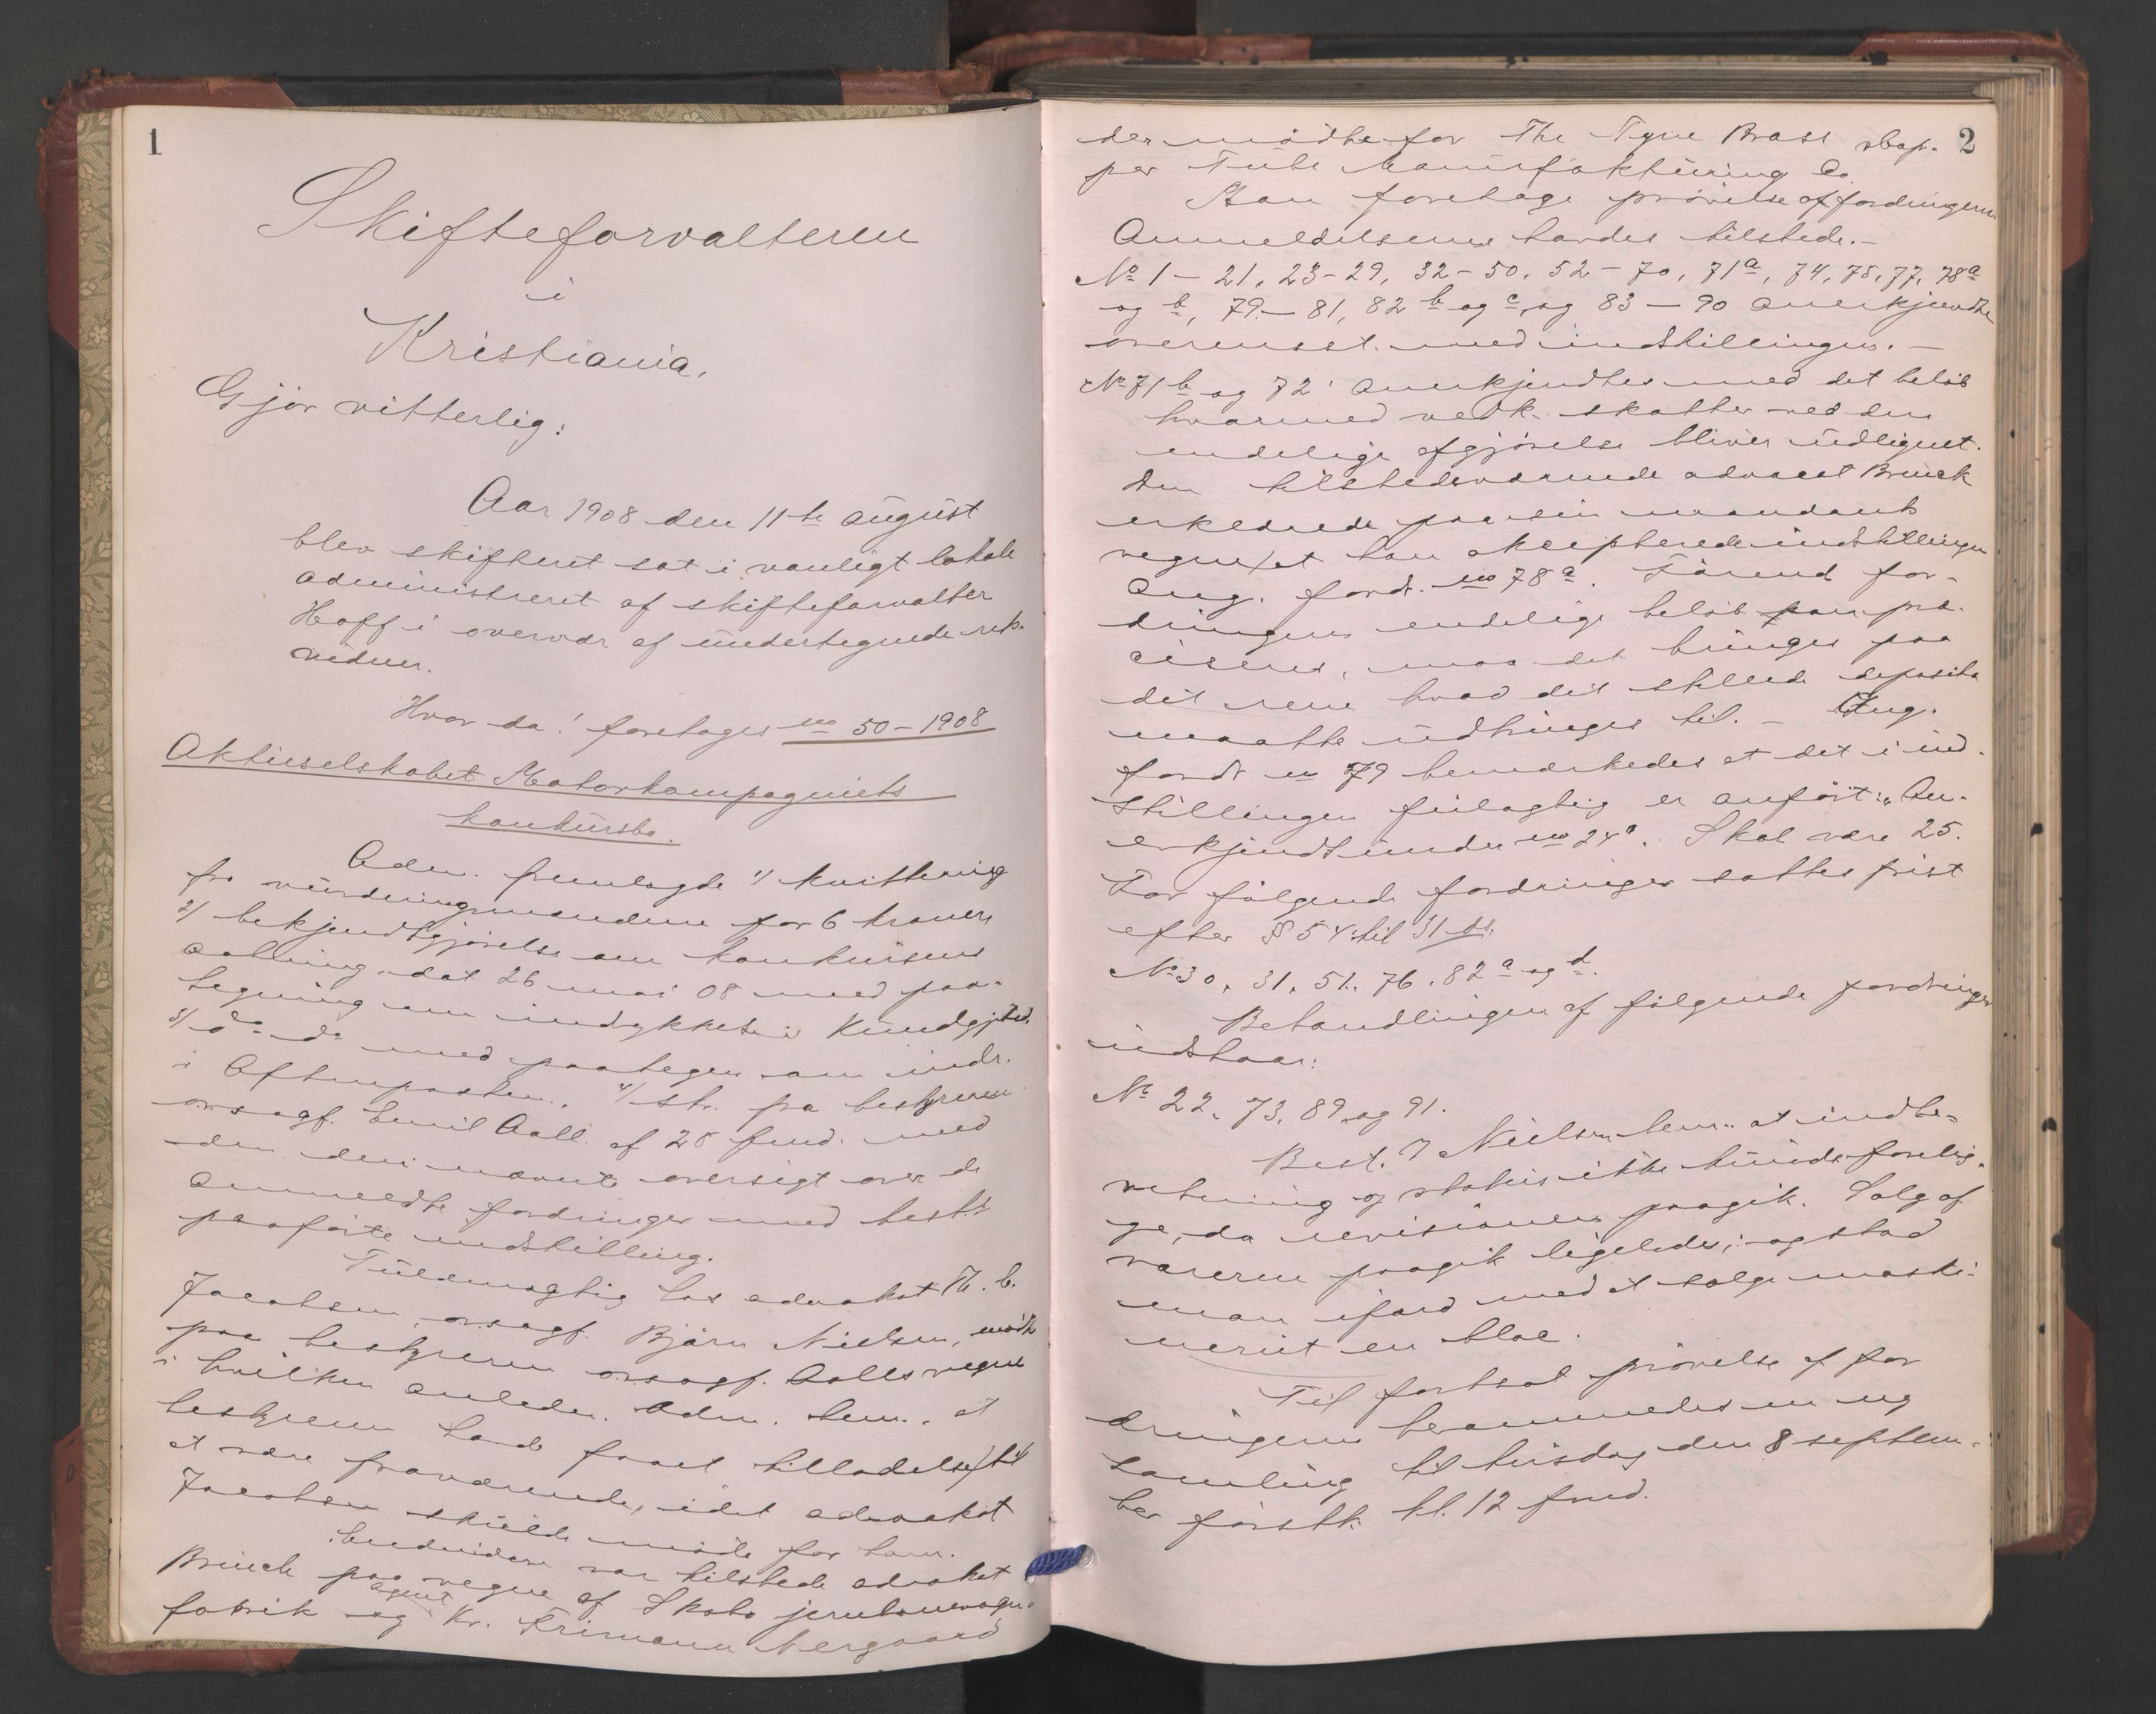 1
Skifteforvalteren
i
Kristiania,
Gjör vitterlig:
Aar 1908 den 11te august
blev skifteret sat i vanligt lokale
administreret af skifteforvalter
Hoff i overvær af undertegnede rets-
vidner.
Hvor da! foretoges no 50-1908
Aktieselskabet Motorkompagniets
konkursbo.
Adm. fremlagde 1/ kvittering
fra vurderingsmændene for 6 kroner
2/ bekjendtgjörelse om konkursens
aabning dat 26 mai 08 med paa-
tegning om indrykkelse i Kundgjtid.
3/ do do med paategn om indr.
i Aftenposten, 4/ skr. fra bestyreren
o.r.sagf. Emil Aall af 28 f.md. med
den deri nævnte oversigt over de
anmeldte fordringer med best.s
paaförte indstilling.
Fuldmægtig hos advokat Th. C.
Jacobsen, o.r.sagf. Björn Nielsen, mödte
paa bestyreren o.r.sagf. Aalls vegne
i hvilken anledn. Adm. bem. at
bestyreren havde faaet tilladelse til
at være fraværende, idet advokat
Jacobsen skulde möde for ham.
Endvidere var tilstede advokat
Brinch paa vegne af Skabo jernbanevogn-
fabrik og agent Kr. Frimann Nergaard
2
der mödte for The Tyne Brass &Cop-
per Tube Manufakturing Co.
Man foretoge prövelse af fordringerne
Anmeldelserne havdes tilstede.-
No 1 - 21, 23-29, 32-50, 52-70, 71a, 74, 75, 77, 78a
og b, 79-81, 82 b og c og 83-90 anerkjendtes
overensst. med indstillingen. -
No 71 b og 72: anerkjendtes med det belöb
hvormed vedk. skatter ved den
endelige afgjörelse bliver udlignet.
Den tilstedeværende advocat Brinck
erklærede paa sin mandants
vegne, at han aksepterede indstillingen
Ang. fordr. no 78a. Förend for-
dringens endelige belöb kan præ-
ciseres, maa det bringes paa
det rene hvad det stillede deposita
maatte udbringes til. - Ang.
fordr no 79 bemærkedes at det i ind-
stillingen feilagtig er anfört: "An-
erkjendt under no 24". Skal være 25.
For fölgende fordringer sattes frist
efter § 54 til 31 ds:
No 30, 31, 51, 76, 82 a og d.
Behandlingen af fölgende fordringer
udstaar:
No 22, 73, 89 og 91.
Best. v Nielsen bem. at indbe-
retning og status ikke kunde forelig-
ge, da revisionen paagik. Salg af
varerne paagik ligeledes; og stod
man ifærd med at sælge maski-
neriet en bloc.
Til fortsat prövelse af for
dringerne berammedes en ny
samling til tirsdag den 8 septem-
ber förstk. kl. 12 fmd.